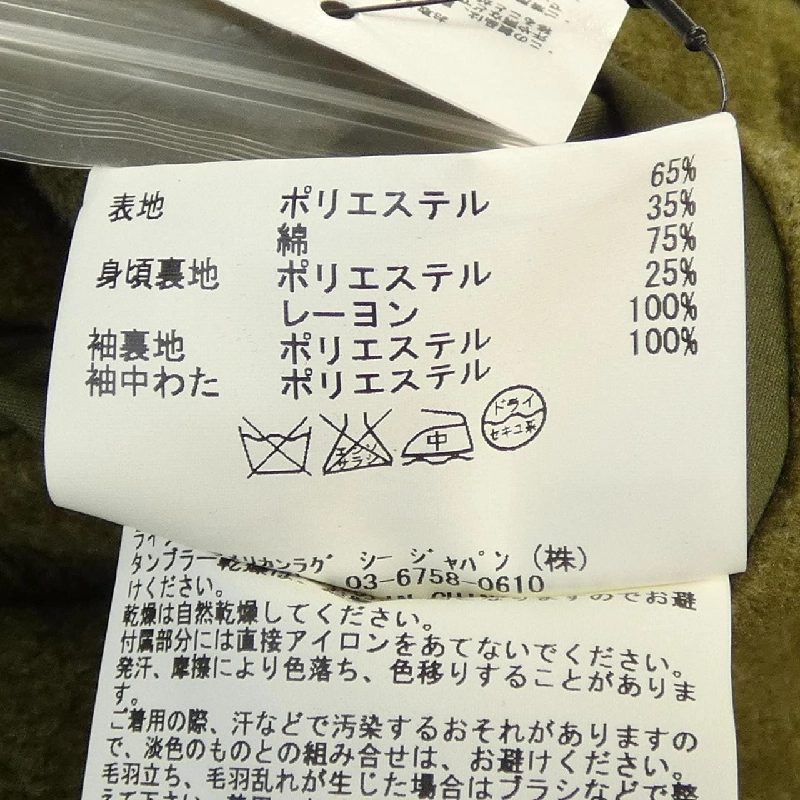 表地 ポリエステル 65%
綿 35%
身頃裏地 ポリエステル 75%
レーヨン 25%
袖裏地 ポリエステル 100%
袖中わた ポリエステル 100%
エンソ
サラシ
中
ドライ
セキユ系
リカンラグ シー ジャパン (株)
03-6758-0610
タンブラー乾
のでお避
けください。
乾燥は自然乾燥してください。
付属部分には直接アイロンをあてないでください。
発汗、摩擦により色落ち、色移りすることがありま
す。
ご着用の際、汗などで汚染するおそれがありますの
で、淡色のものとの組み合せは、お避けください。
毛羽立ち、毛羽乱れが生じた場合はブラシなどで整
えて下さい。